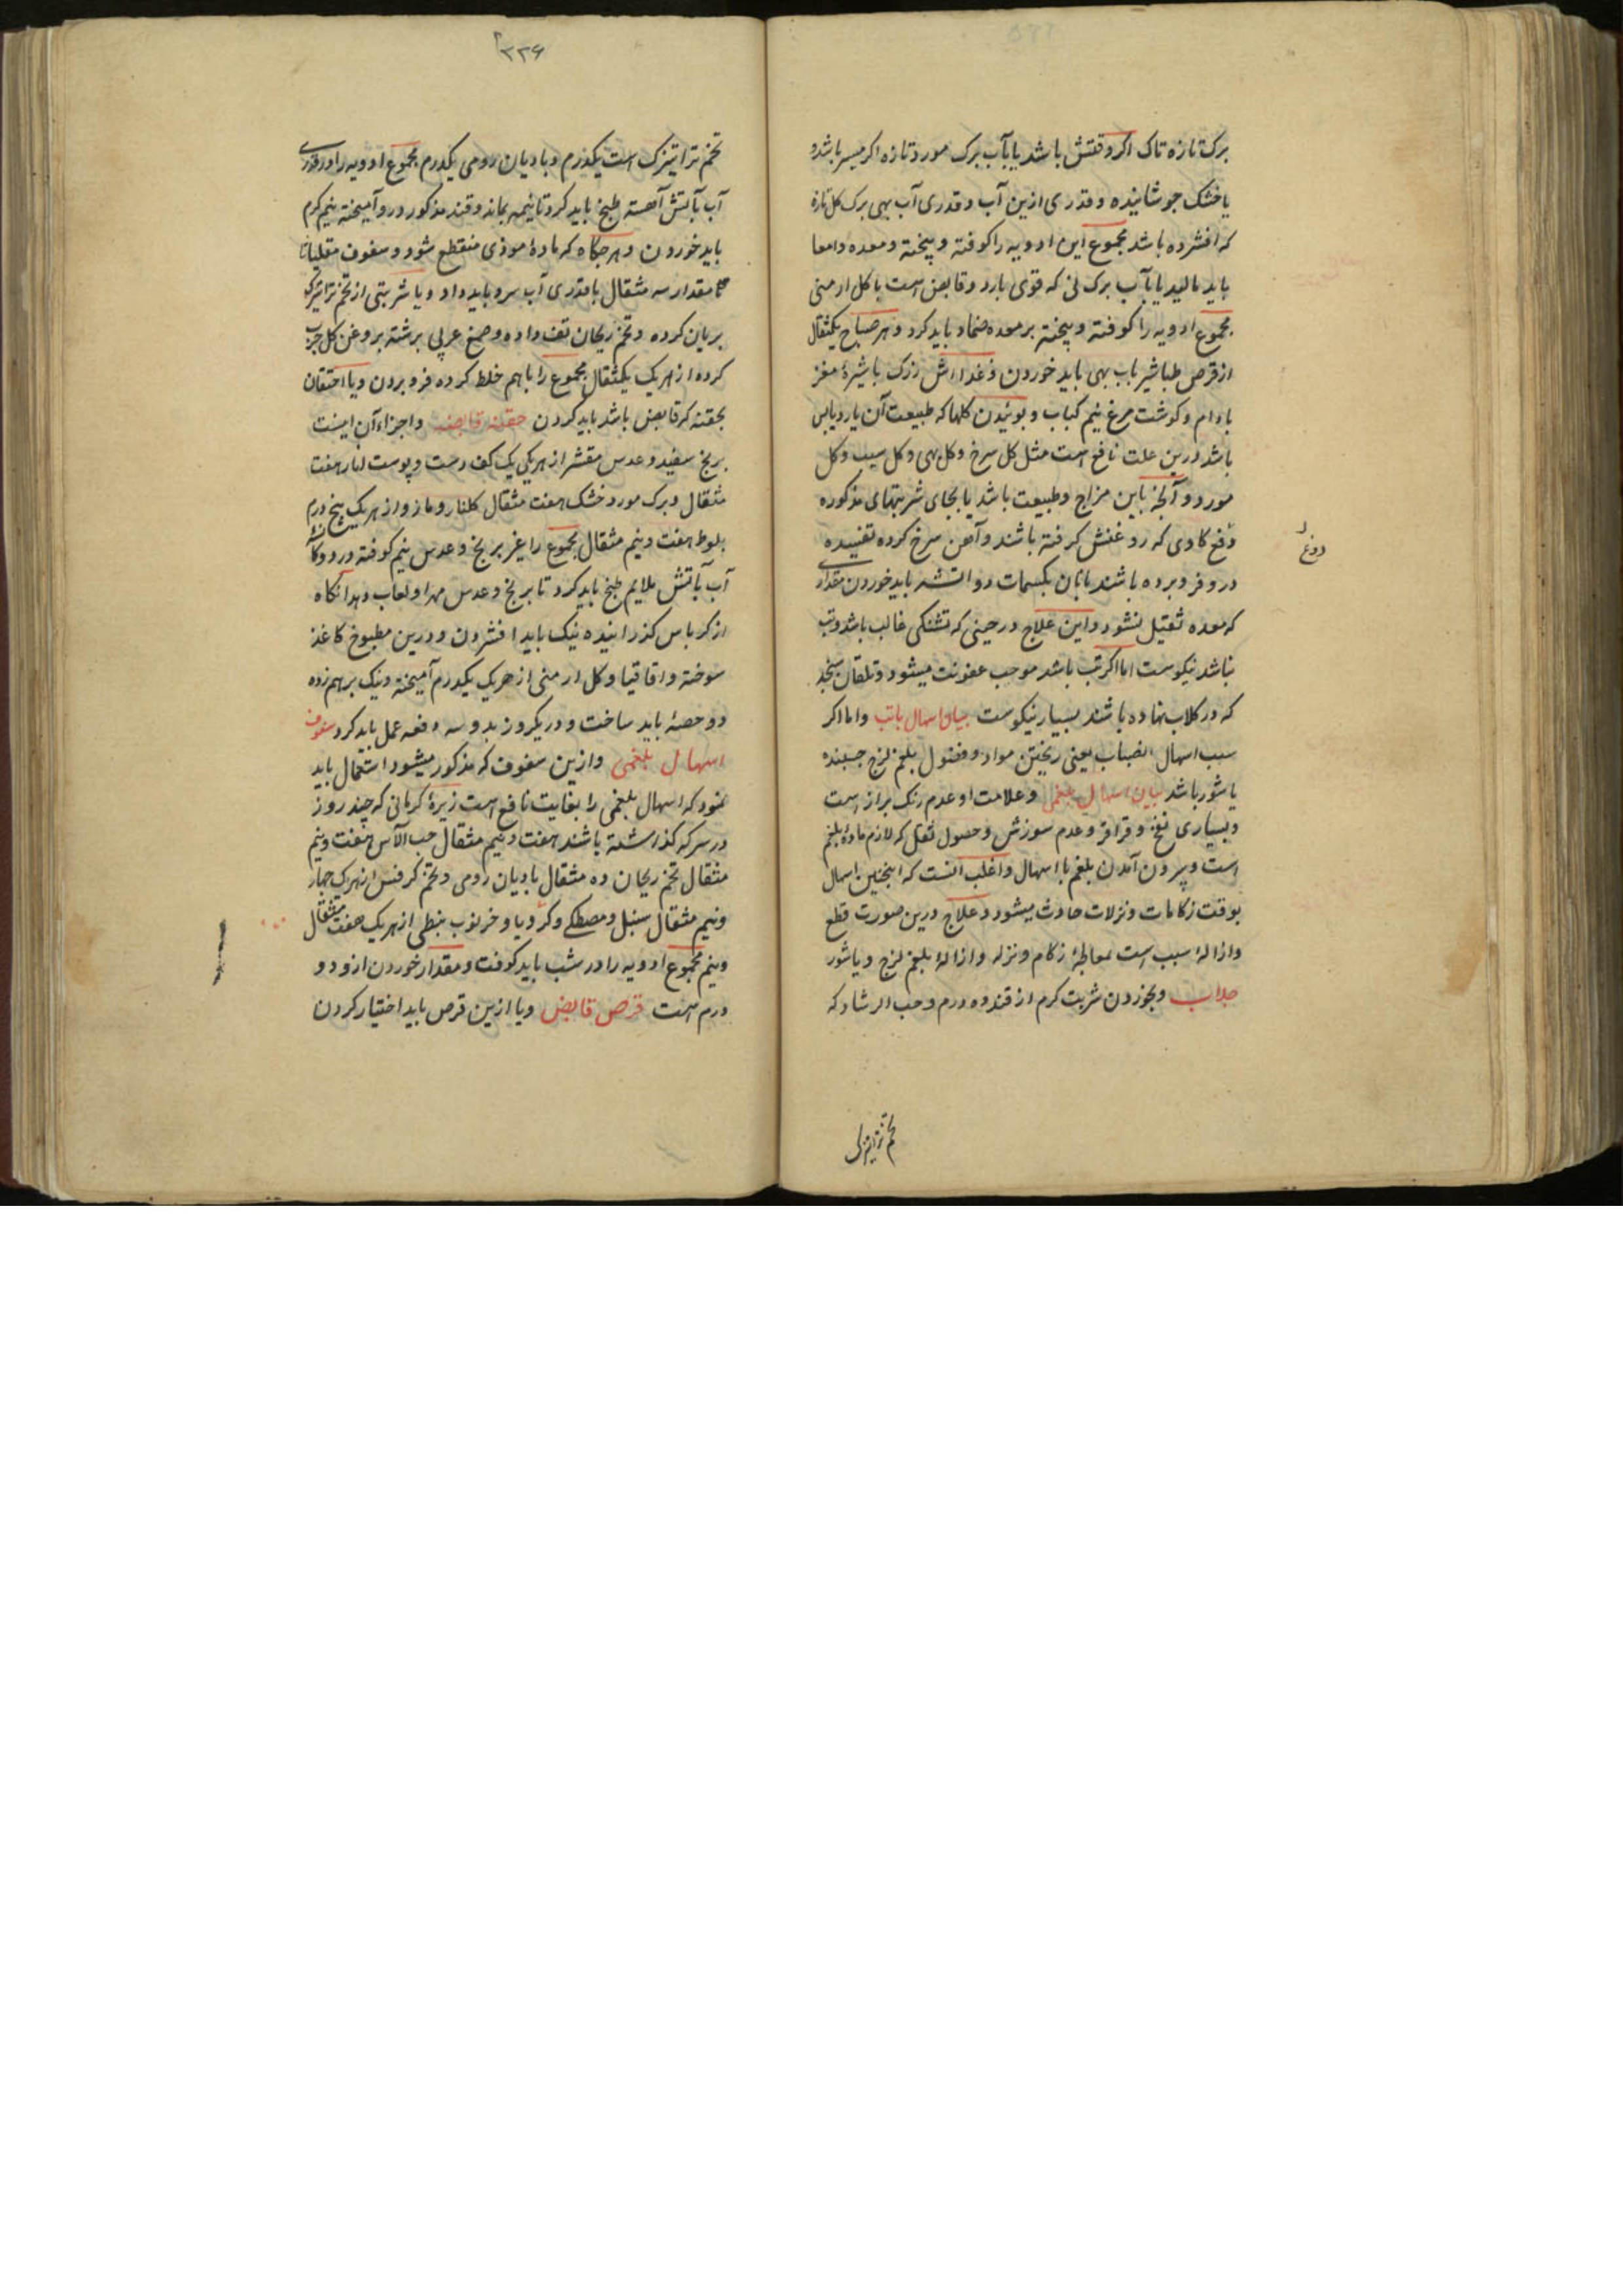 برک تازه تاک اکر وقتش باشد یا بآب برک مورد تازه اکر میسر باشد و
یا خشک جوشانیده و قدری ازین آب و قدری آب بهی برک کل تازه
که افشرده باشد مجموع این ادویه را کوفته و پیخته و معده و امعا
باید مالید یا بآب برک نی که قوی بارد و قابض است با کل ارمنی
مجموع ادویه را کوفته و پیخته بر معده ضماد باید کرد و هر صباح یکمثقال
از قرص طباشیر باب بهی باید خوردن و غذا اش زرک با شیرهٔ مغز
بادام و کوشت مرغ نیم کباب و بوئیدن کلها که طبیعت آن بارد یابس
باشد درین علت نافع است مثل کل سرخ و کل بهی و کل سیب و کل
مورد و آنچه باین مزاج و طبیعت باشد یا بجای شربتهای مذکوره
دوغ کاوی که روغنش کرفته باشند و آهن سرخ کرده تفسیده
دوغ
درو فرو برده باشند با نان بکسمات دو اتشه باید خوردن مقداری
که معده ثقیل نشود و این علاج در حینی که تشنکی غالب باشد و تب
نباشد نیکوست اما اکر تب باشد موجب عفونت میشود و تلقان سنجد
که در کلاب نهاده باشند بسیار نیکوست بیان اسهال باتب و اما اکر
سبب اسهال انصباب یعنی ریختن مواد و فضول بلغم لزج چسبنده
یا شور باشد بیان اسهال بلغمی و علامت او عدم رنک براز است
و بسیاری نفخ و قراقر و عدم سوزش و حصول ثقل که لازم مادهٔ بلغم
است و بیرون آمدن بلغم با اسهال و اغلب انست که اینچنین اسهال
بوقت زکامات و نزلات حادث میشود و علاج درین صورت قطع
و ازالهٔ سبب است بمعالجهٔ زکام و نزله و ازالهٔ بلغم لزج و یا شور
جلاب و بخوردن شربت کرم از قند ده درم و حب الرشاد که
تخم تراتیزک
۲۲۶
تخم تراتیزک است یکدرم و بادیان رومی یکدرم مجموع ادویه را در قدری
آب بآتش آهسته طبخ باید کرد تا نیمه بماند و قند مذکور درو آمیخته نیم کرم
باید خوردن و هر چکاه که مادهٔ موذی منقطع شود و سفوف مقلیاثا
مقدار سه مثقال با قدری آب سرد باید داد و یا شربتی از تخم تراتیزک
بریان کرده و تخم ریحان تف داده و صمغ عربی برشته بروغن کل چرب
کرده از هر یک یکمثقال مجموع را باهم خلط کرده فرو بردن و یا احتقان
بحقنه که قابض باشد باید کردن حقنه قابضه و اجزاء آن اینست
برنج سفید و عدس مقشر از هر یکی یک کف دست و پوست انار هفت
مثقال و برک مورد خشک هفت مثقال کلنار و مازو از هر یک پنج درم
بلوط هفت و نیم مثقال مجموع را غیر برنج و عدس نیم کوفته در دوکاسه
آب بآتش ملایم طبخ باید کرد تا برنج و عدس مهرا و لعاب دهد آنکاه
از کرباس کذرانیده نیک باید افشردن و درین مطبوخ کاغذ
سوخته و اقاقیا و کل ارمنی از هر یک یکدرم آمیخته و نیک برهم زده
دو حصهٔ باید ساخت و در یکروز بدو سه دفعه عمل باید کرد سفوف
اسهال بلغمی و ازین سفوف که مذکور میشود استعمال باید
نمود که اسهال بلغمی را بغایت نافع است زیرهٔ کرمانی که چند روز
در سرکه کذاشته باشند هفت و نیم مثقال حب الآس هفت و نیم
مثقال تخم ریحان ده مثقال بادیان رومی و تخم کرفس از هر یک چهار
و نیم مثقال سنبل و مصطکی و کرویا و خرنوب نبطی از هر یک هفت مثقال
و نیم مجموع ادویه را در شب باید کوفت و مقدار خوردن ازو دو
درم است قرص قابض و یا ازین قرص باید اختیار کردن